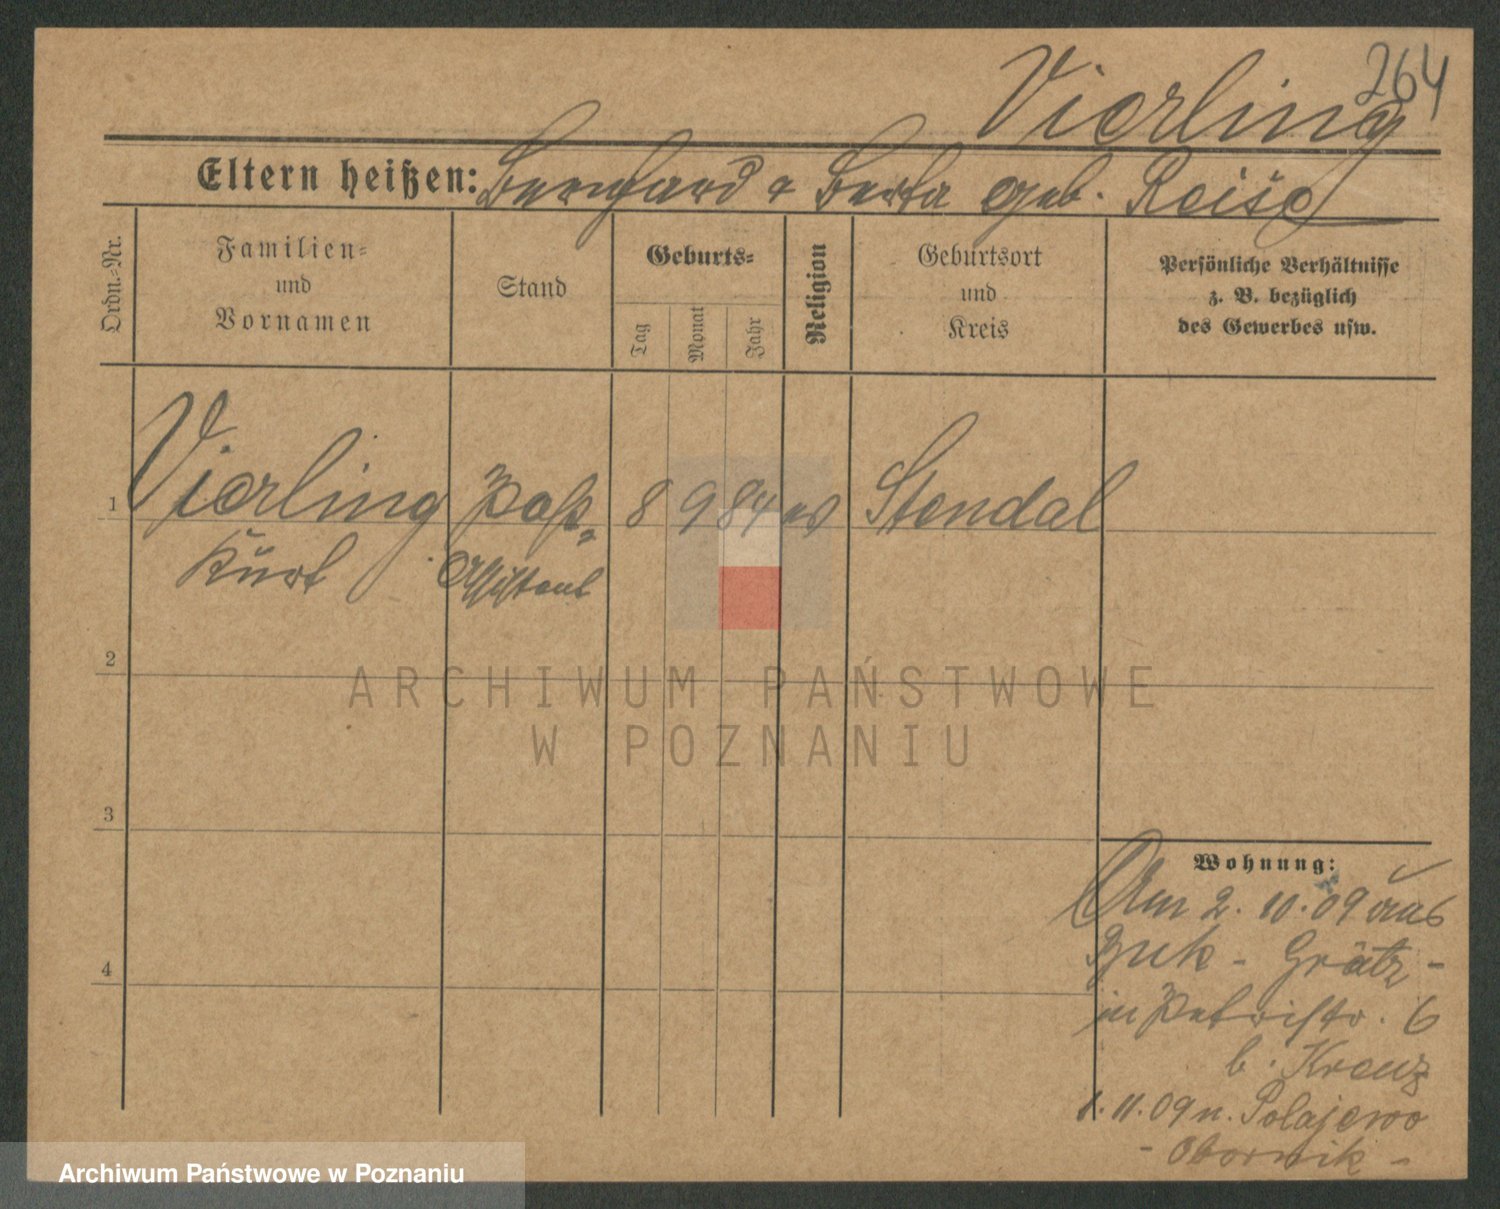 264
Vierling
Eltern heißen: Bernhard & Berta geb. Reise
Ordn.=Nr.
Familien=
und
Vornamen
Stand
Geburts=
Tag
Monat
Jahr
Religion
Geburtsort
und
Kreis
Persönliche Verhältnisse
z. B. bezüglich
des Gewerbes usw.
1 Vierling Post- 8 9 84 ev Stendal
Kurt Assistent
2
3
4
Wohnung:
Am 2. 10. 09 aus
Buk - Grätz -
in Petristr. 6
b. Kreuz
1. 11. 09 n. Polajewo
- Obornik -
ARCHIWUM PAŃSTWOWE
W POZNANIU
Archiwum Państwowe w Poznaniu